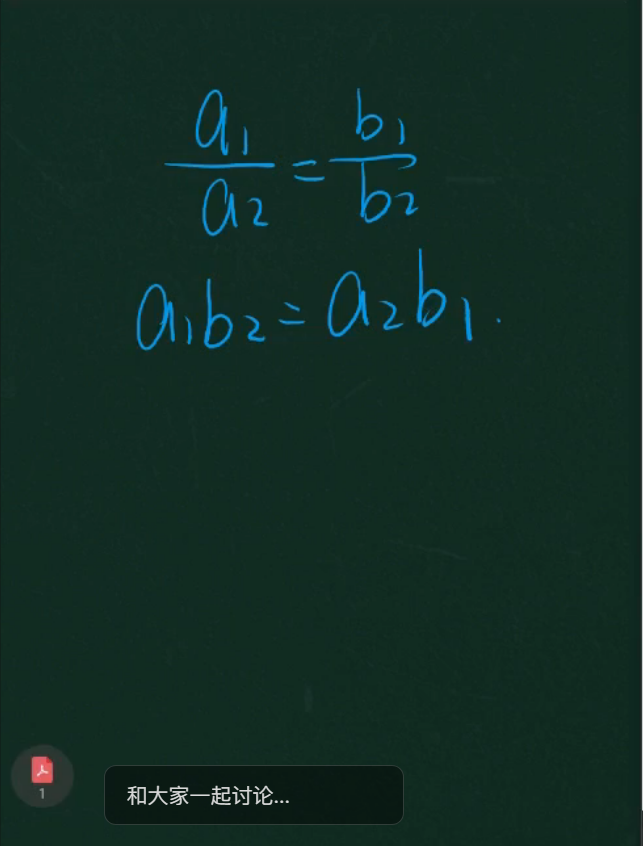 a₁/a₂ = b₁/b₂
a₁b₂ = a₂b₁.
1
和大家一起讨论...